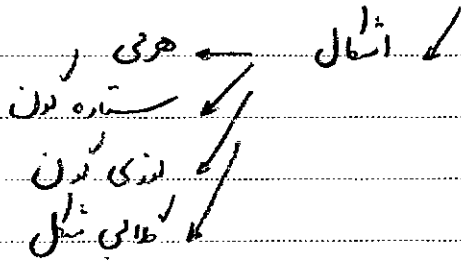 اشکال ← هرمی
ستاره گون
لوزی گون
گلابی شکل